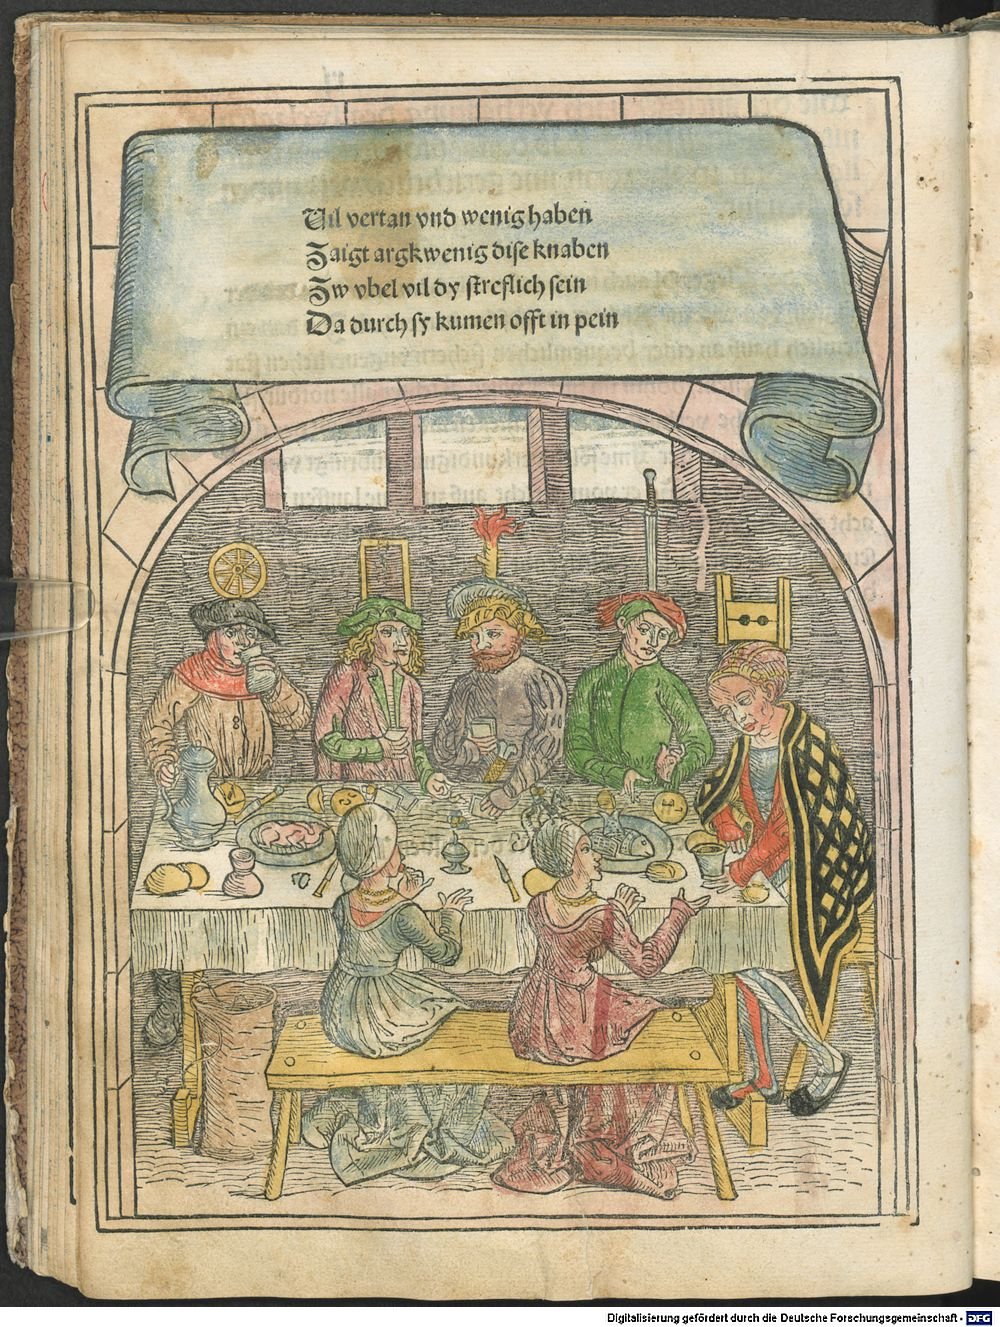 Vil vertan vnd wenig haben
Zaigt argkwenig dise knaben
Zw vbel vil dy streflich sein
Da durch sy kumen offt in pein
Digitalisierung gefördert durch die Deutsche Forschungsgemeinschaft - DFG